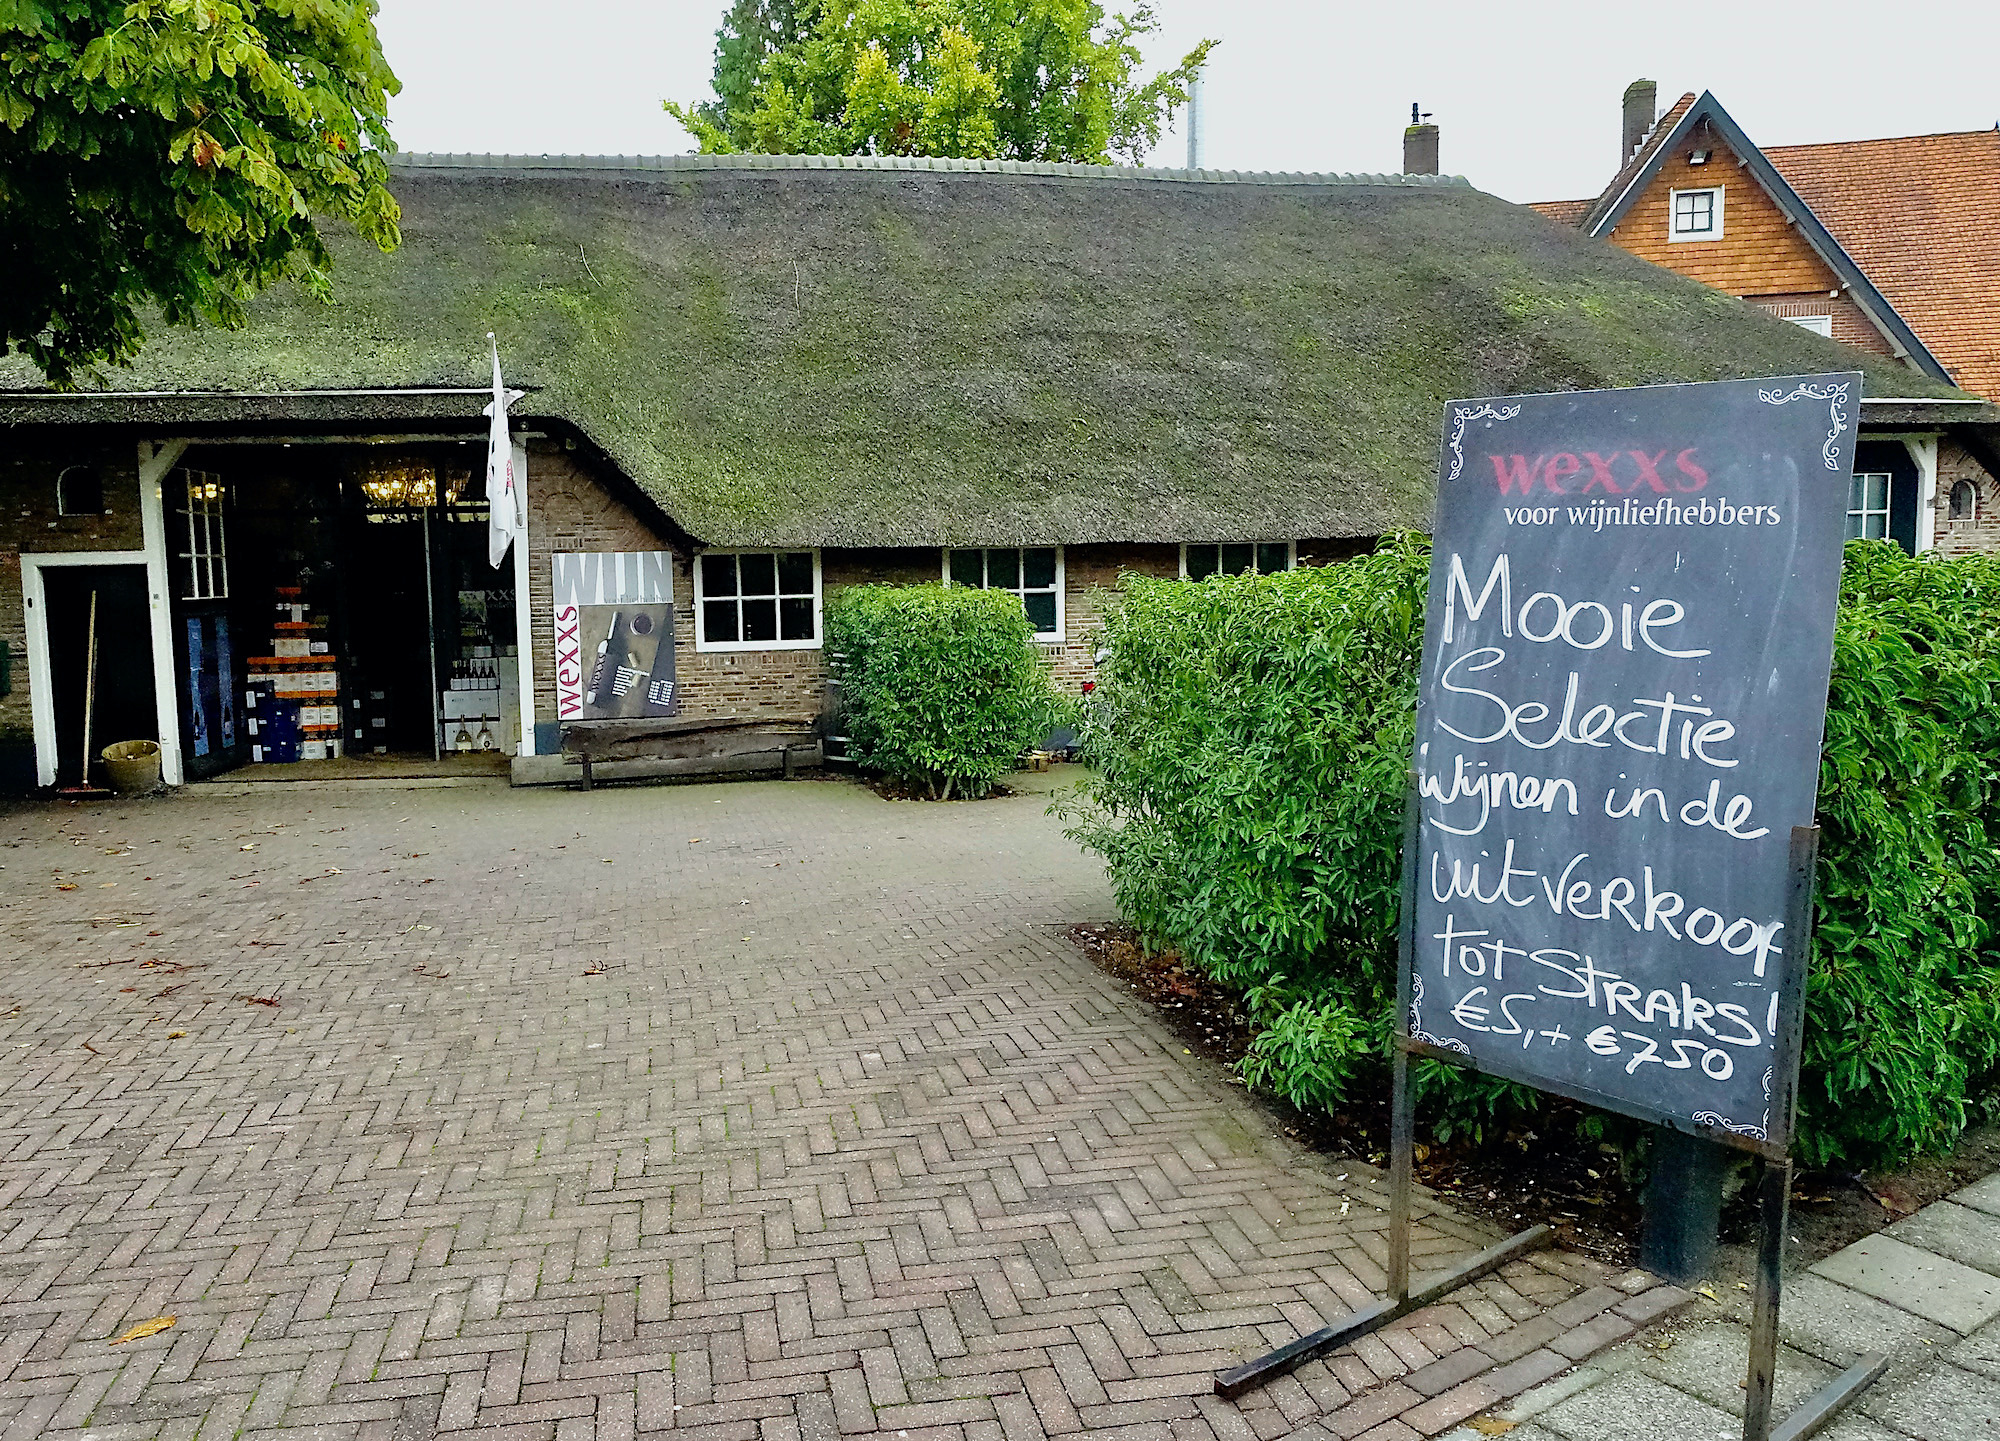 WIJN
wexxs
wexxs
voor wijnliefhebbers
Mooie
Selectie
Wijnen in de
uitverkoof
tot straks!
€5,+ €750